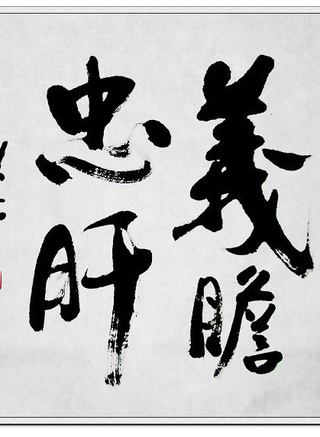 義膽
忠肝